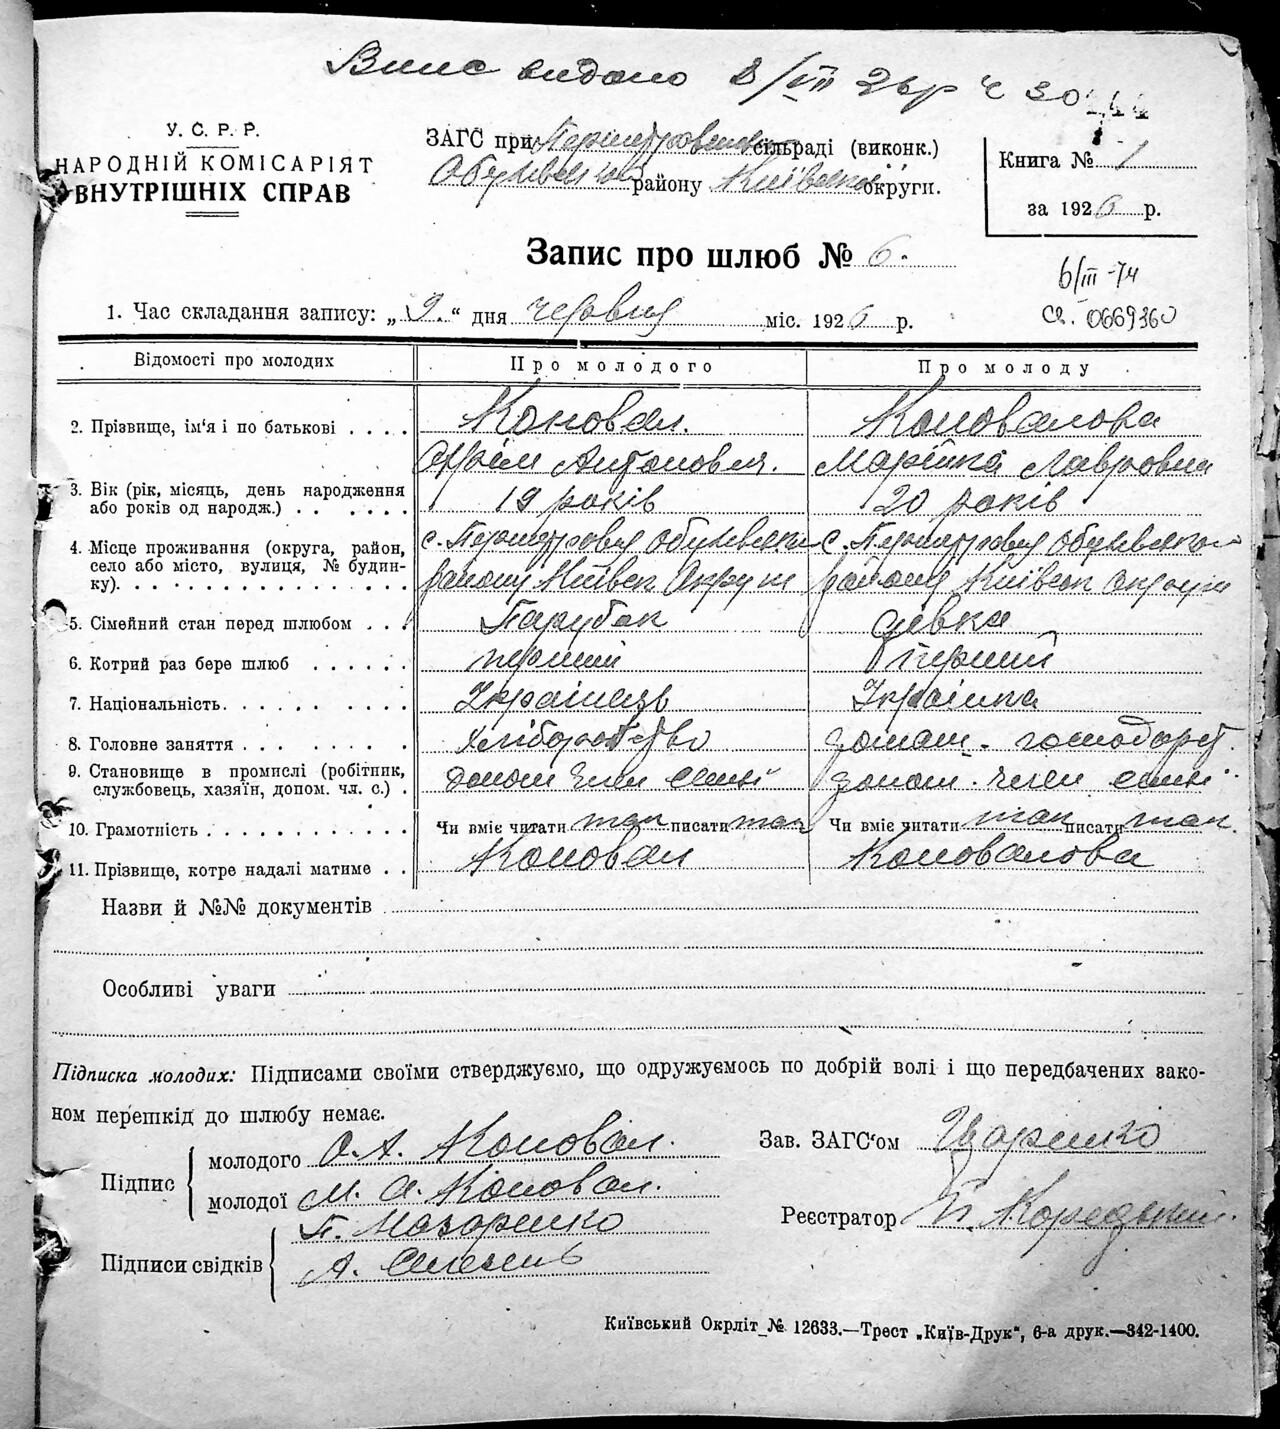 Виис видано 8/VII 26р Ч 30
У. С. Р. Р.
НАРОДНІЙ КОМІСАРІЯТ
ВНУТРІШНІХ СПРАВ
ЗАГС при сільраді (виконк.)
району Київської округи.
Книга № 1
за 1926 р.
Запис про шлюб № 6.
6/III-74
0669360
1. Час складання запису: „9.“ дня червня міс. 1926 р.
Відомості про молодих Про молодого Про молоду
2. Прізвище, ім'я і по батькові . . . . Коновал. Коновалова
Антонович. Марійка Лавровна
3. Вік (рік, місяць, день народження
або років од народж.) . . . . . . 19 років 20 років
4. Місце проживання (округа, район,
село або місто, вулиця, № будин-
ку). . . . . . . . . . . . . . . .
с. району Київск Округи с. району Київск округи
5. Сімейний стан перед шлюбом . . . Парубок дівка
6. Котрий раз бере шлюб . . . . . . перший перший
7. Національність. . . . . . . . . . Українець Українка
8. Головне заняття . . . . . . . . хліборобство домаш. господарст.
9. Становище в промислі (робітник,
службовець, хазяїн, допом. чл. с.) . допом член семьї допом. член семьї
10. Грамотність . . . . . . . . . . . . Чи вміє читати так писати так Чи вміє читати так писати так.
11. Прізвище, котре надалі матиме . . Коновал Коновалова
Назви й №№ документів
Особливі уваги
Підписка молодих: Підписами своїми стверджуємо, що одружуємось по добрій волі і що передбачених зако-
ном перешкід до шлюбу немає.
Підпис
молодого О. А. Коновал.
молодої М. Л. Коновал.
Підписи свідків
П. Назаренко
А.
Зав. ЗАГС'ом
Реєстратор
Київський Окрліт № 12633.—Трест „Київ-Друк“, 6-а друк.—342-1400.